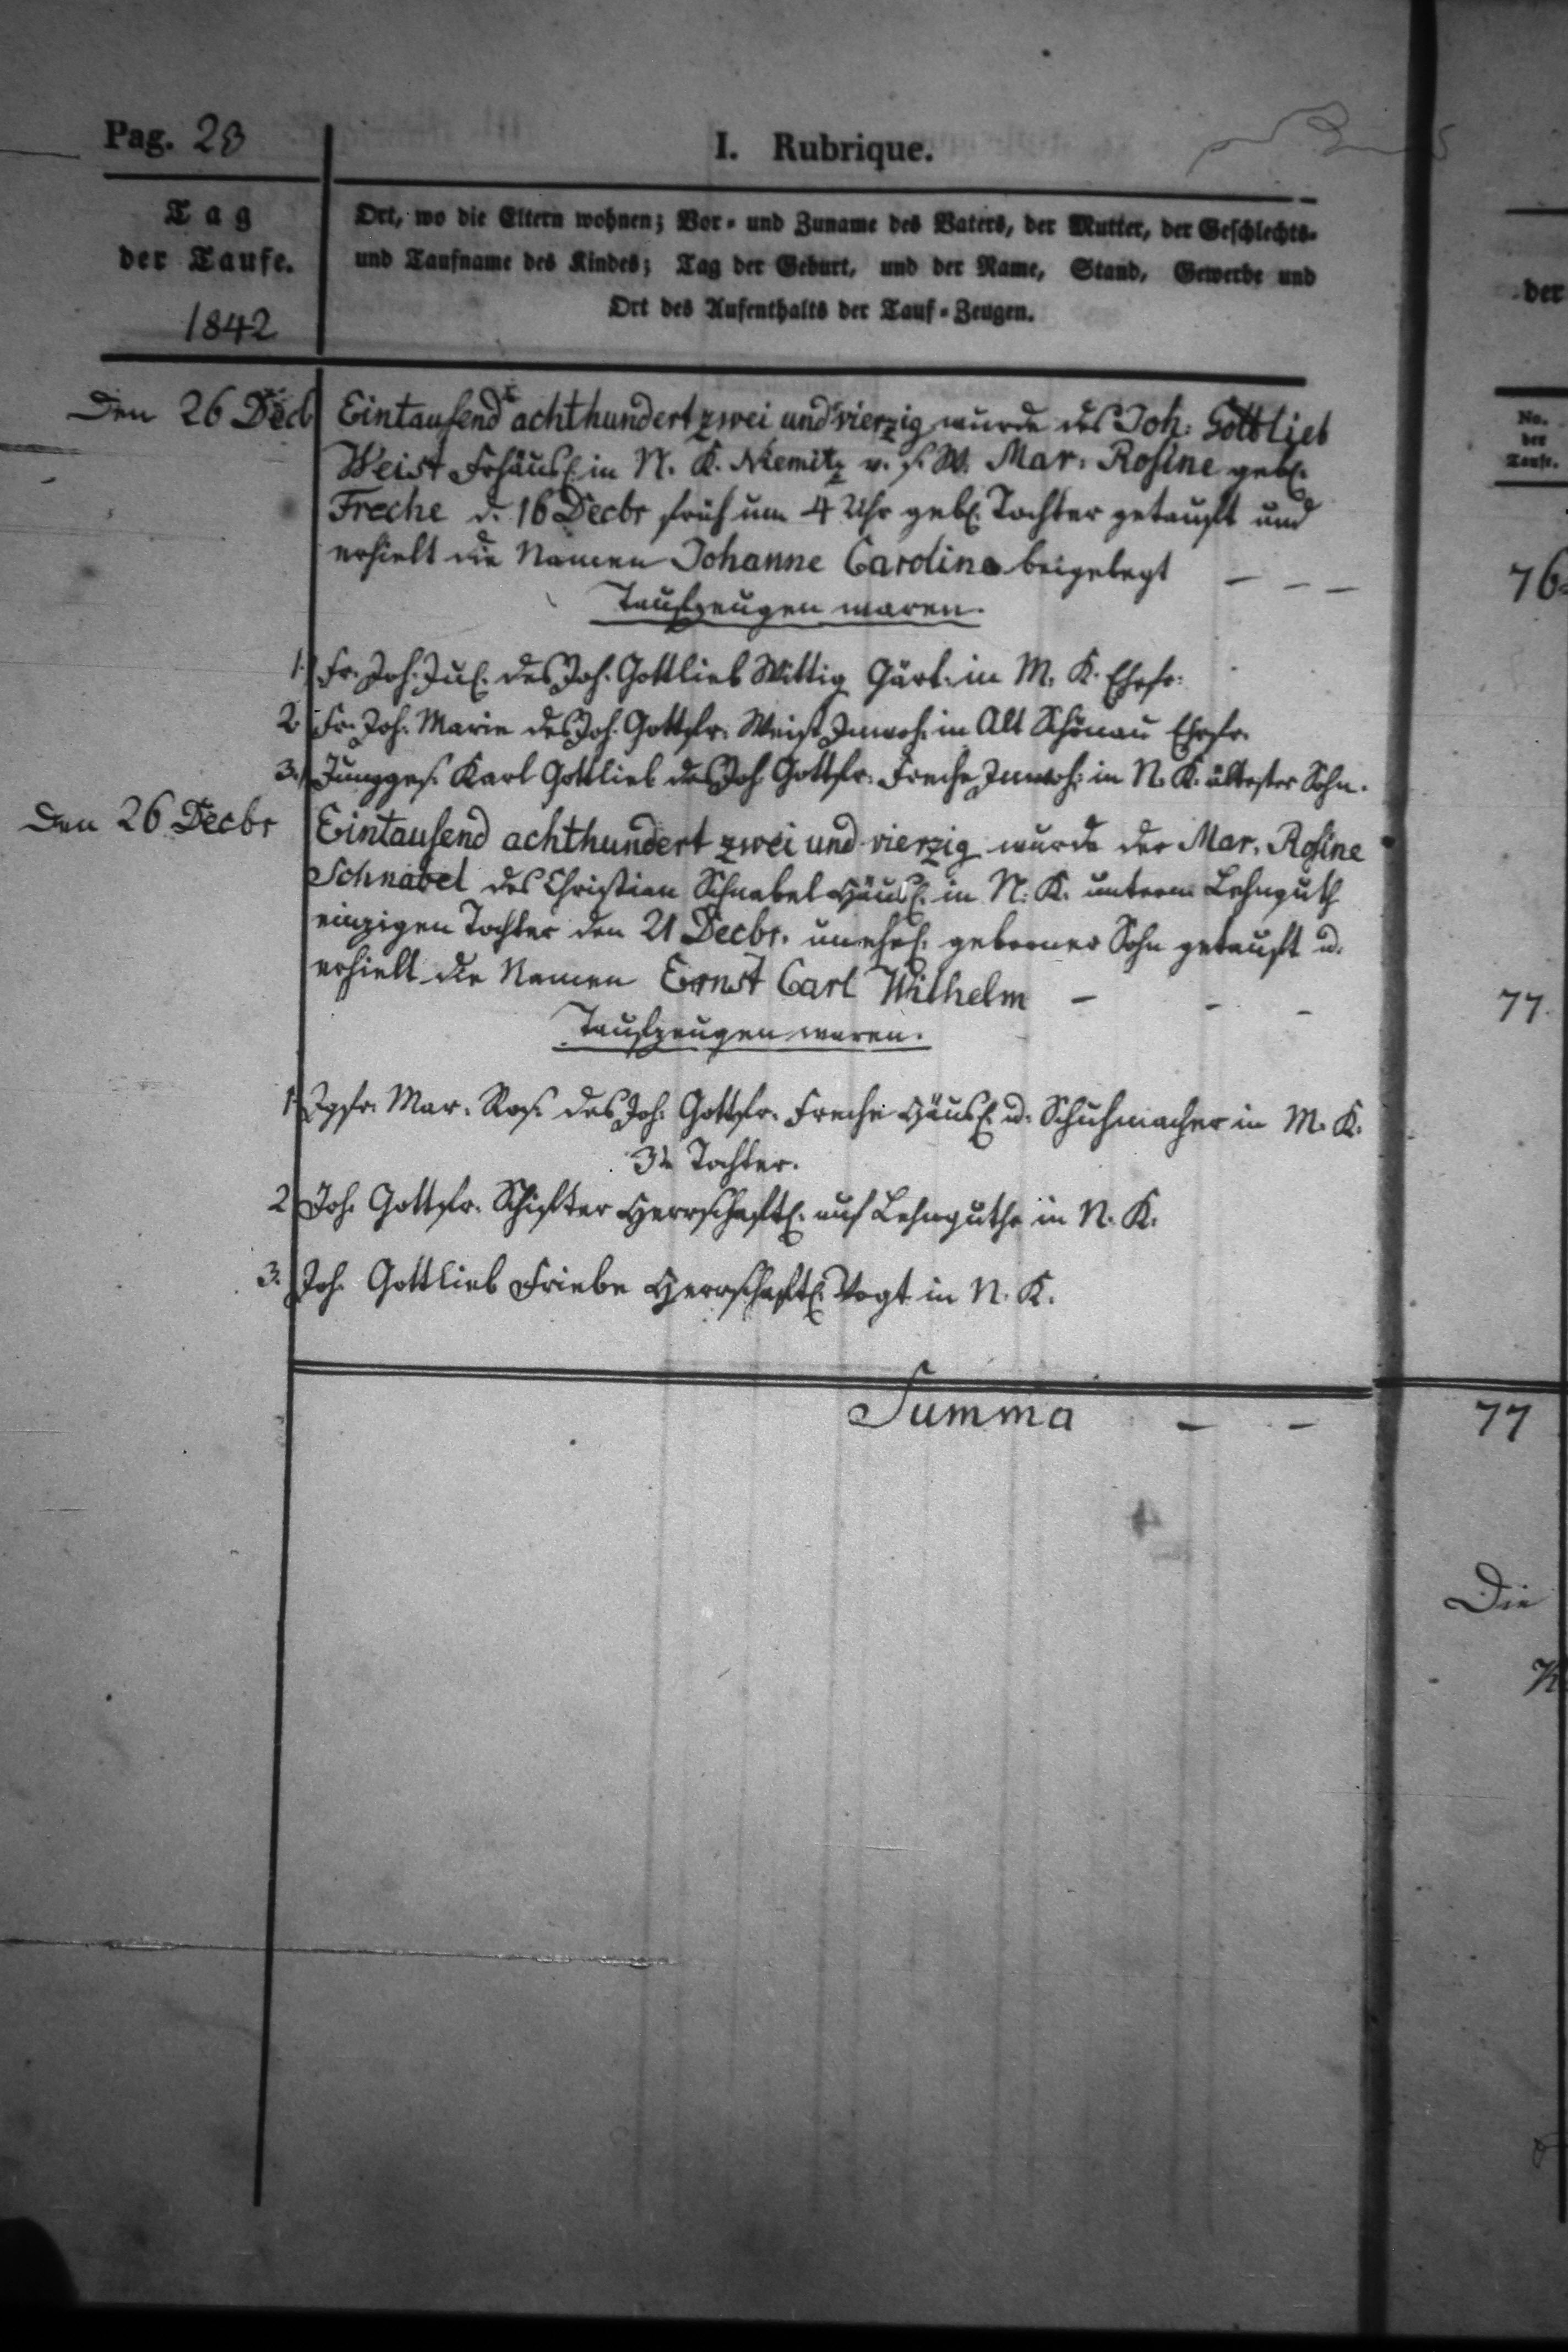 Pag. 23
I. Rubrique.
Tag
der Taufe.
1842
Ort, wo die Eltern wohnen; Vor- und Zuname des Vaters, der Mutter, der Geschlechts-
und Taufname des Kindes; Tag der Geburt, und der Name, Stand, Gewerbe und
Ort des Aufenthalts der Tauf-Zeugen.
Den 26 Decb Eintausend achthundert zwei und vierzig wurde des Joh: Gottlieb
Weist Frhäusl. in N. K. Niemitz u. s. W. Mar. Rosine gebl.
Freche d. 16 Decbr früh um 4 Uhr gebl. Tochter getauft und
erhielt die Namen Johanne Carolina beigelegt - - -
Taufzeugen waren.
1. Fr. Joh. Jul. des Joh. Gottlieb Wittig Gärt. in M. K. Ehefr.
2. Fr. Joh. Marie des Joh. Gottfr. Weist Inwoh. in Alt Schönau Ehefr.
3. Jungges. Karl Gottlieb des Joh. Gottfr. Freche Inwoh. in N. K. ältester Sohn.
Den 26 Decbr Eintausend achthundert zwei und vierzig wurde der Mar. Rosine
Schnabel des Christian Schnabel Häusl. in N. K. unterm Lehnguth
einzigen Tochter den 21 Decbr. unehel. geborner Sohn getauft u.
erhielt die Namen Ernst Carl Wilhelm - - -
Taufzeugen waren.
1. Jgfr. Mar. Ros. des Joh. Gottfr. Freche Häusl. u. Schuhmacher in M. K.
3te Tochter.
2. Joh. Gottfr. Herrschaftl. auf Lehnguthe in N. K.
3. Joh. Gottlieb Friebe Herrschaftl. Vogt in N. K.
Summa - -
der
No.
der
Taufe.
76
77
77
Die